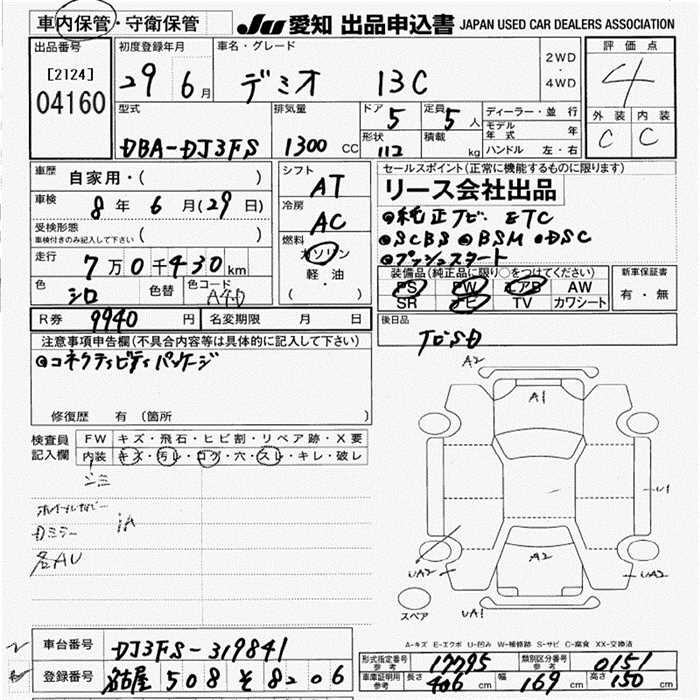 車内保管・守衛保管
JU 愛知 出品申込書 JAPAN USED CAR DEALERS ASSOCIATION
出品番号 初度登録年月 車名・グレード 評価点
[2124] 29 6月 デミオ 13C 2WD・4WD 4
04160
型式 排気量 ドア 5 定員 5人 ディーラー・並行 外装 内装
モデル年式 年
DBA-DJ3FS 1300 CC 形状 112 積載 kg ハンドル 左・右 C C
車歴 自家用・( ) シフト AT セールスポイント(正常に機能するものに限ります)
リース会社出品
車検 8年 6月(29日) 冷房 AC ●純正Tビ- ETC
受検形態 車検付きのみ記入して下さい ( ) 燃料 ガソリン ●SCBS ●BSM ●DSC
●プッシュスタート
走行 7万0千430km 軽・油 装備品(純正品に限り○をつけてください) 新車保証書
色 シロ 色替 色コード A4D ( ) PS PW エアB AW 有・無
SR ナビ TV カワシート
R券 9940円 名変期限 月 日 後日品
注意事項申告欄(不具合内容等は具体的に記入して下さい)
●コネクティビティパッケージ
修復歴 有 (箇所 )
検査員記入欄 FW キズ・飛石・ヒビ割・リペア跡・X要
内装 キズ・汚レ・コゲ・穴・スレ・キレ・破レ
A2
A1
U1
A2
UA2
UA2
UA1
スペア
A-キズ E-エクボ U-凹み W-補修跡 S-サビ C-腐食 XX-交換済
車台番号 DJ3FS-319841
登録番号 名古屋 508 そ 8206
形式指定番号 参考 17795 類別区分番号 参考 0151
車庫証明用 参考 長さ 406 cm 幅 169 cm 高さ 150 cm